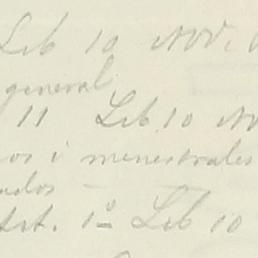 Lib 10 nov.
general
11 Lib 10 no
os i menestrales
ados
tit. 1º Lib 10